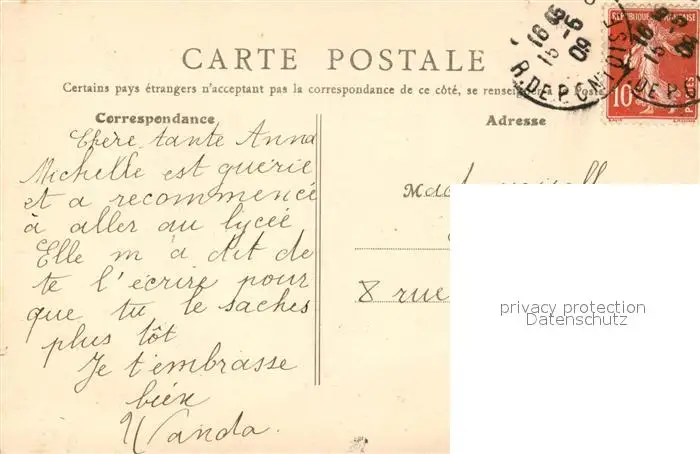 CARTE POSTALE
Certains pays étrangers n'acceptant pas la correspondance de ce côté, se renseigner à la Poste
Correspondance
Adresse
Chère tante Anna
Michelle est guérie
et a recommencé
à aller au lycée
Elle m'a dit de
te l'écrire pour
que tu le saches
plus tôt
Je t'embrasse
bien
Wanda.
8 rue
RÉPUBLIQUE FRANÇAISE
10
POSTES
R. DE P
privacy protection
Datenschutz